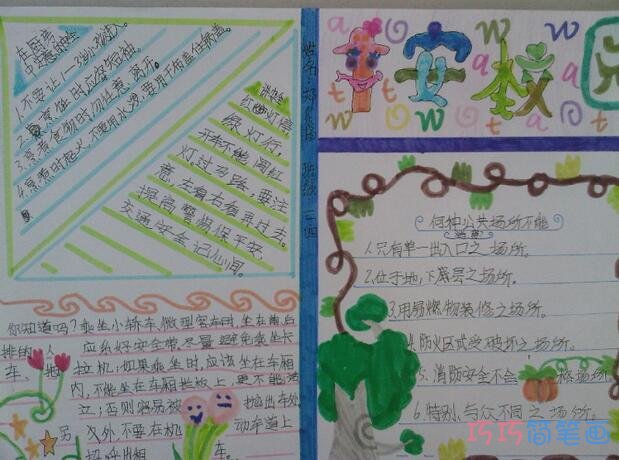 在厨房
中注意的安全
1.不要让1—3岁小孩入
2.烹煮时应穿短袖。
3.烹煮食物时勿任意离开。
4.烹煮时起火,不要用水泼,要用于布盖住锅盖。
讲安全
红灯停
绿灯行,
开车不能闯红
灯过马路,要注
意,左看右看再过去。
提高警惕保平安,
交通安全记心间。
你知道吗?乘坐小轿车、微型客车时,坐在前后
排的人 应系好安全带,尽量避免乘坐卡
车、拖 拉机;如果乘坐时,应该坐在车厢
内,不能坐在车厢栏板上,更不能站
立,否则容易被
另外,不要在机 动车道上
招呼出租 车。
a w o w a
安校
t w o w a t
何种公共场所不能
1.只有单一出入口之场所。
2.位于地下底层之场所。
3.用易燃物装修之场所。
4.防火区或受破坏之场所。
5.消防安全不会 格场所
6.特别与众不同之场所。
巧巧简笔画